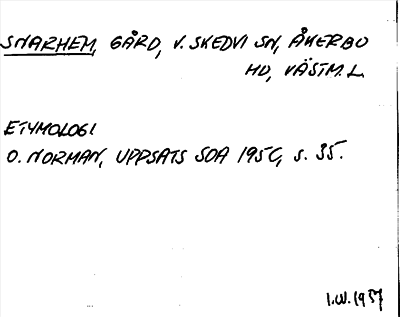 SNARHEM, GÅRD, V. SKEDVI SN, ÅKERBO
HD, VÄSTM. L.
ETYMOLOGI
O. NORMAN, UPPSATS SOA 1950, s. 35.
I.W. 1957